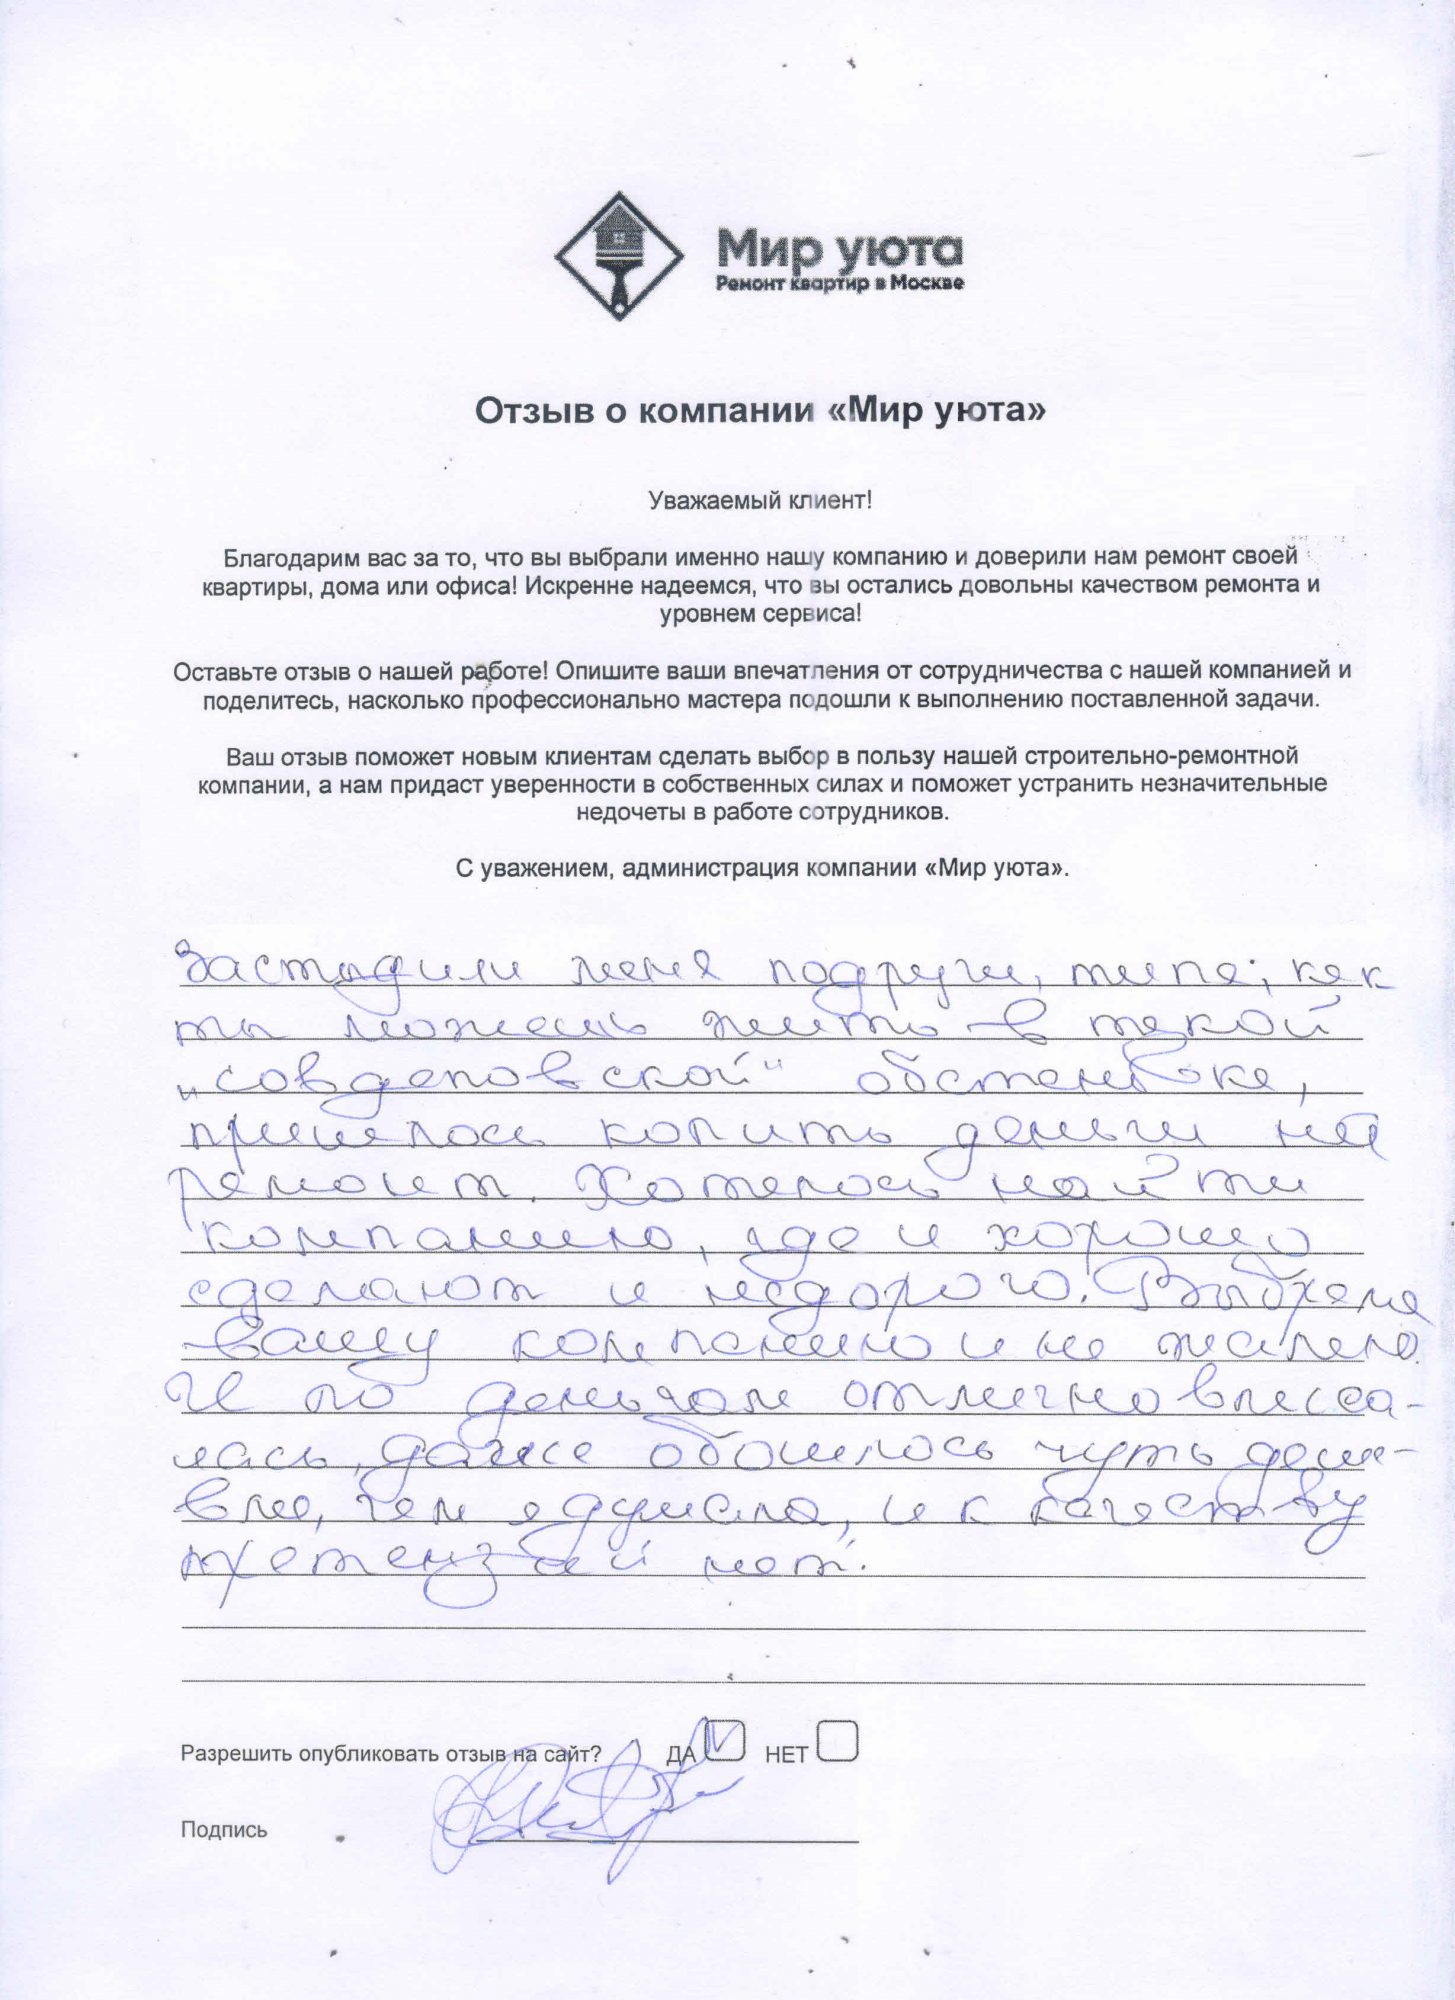 Мир уюта
Ремонт квартир в Москве
Отзыв о компании «Мир уюта»
Уважаемый клиент!
Благодарим вас за то, что вы выбрали именно нашу компанию и доверили нам ремонт своей
квартиры, дома или офиса! Искренне надеемся, что вы остались довольны качеством ремонта и
уровнем сервиса!
Оставьте отзыв о нашей работе! Опишите ваши впечатления от сотрудничества с нашей компанией и
поделитесь, насколько профессионально мастера подошли к выполнению поставленной задачи.
Ваш отзыв поможет новым клиентам сделать выбор в пользу нашей строительно-ремонтной
компании, а нам придаст уверенности в собственных силах и поможет устранить незначительные
недочеты в работе сотрудников.
С уважением, администрация компании «Мир уюта».
Застыдили меня подруги, типа; как
ты можешь жить в такой
„совдеповской“ обстановке,
пришлось копить деньги на
ремонт. Хотелось найти
компанию, где и хорошо
сделают и недорого. Выбрала
вашу компанию и не жалею.
И по деньгам отлично вписа-
лась, даже обошлось чуть деше-
вле, чем я думала, и к качеству
претензий нет.
Разрешить опубликовать отзыв на сайт? ДА НЕТ
Подпись